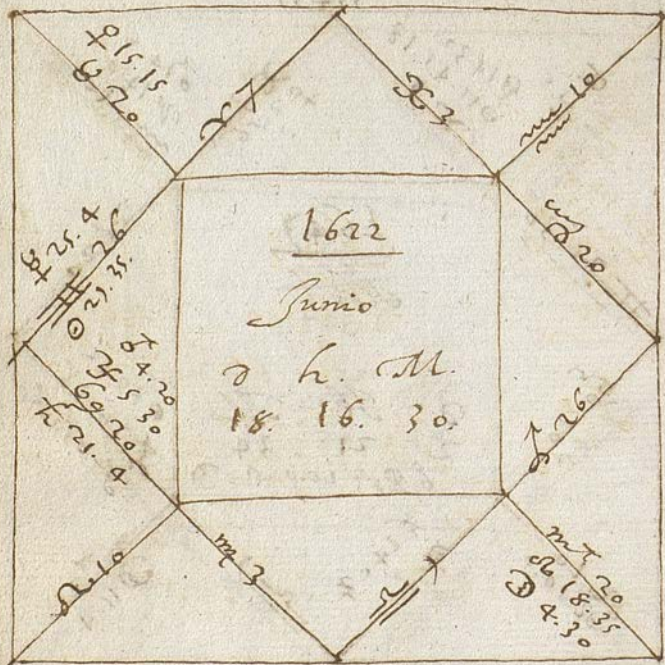 ♀ 15.15
♉ 20
♈ 7
♓ 3
♒ 10
☿ 25.4
♊ 26
☉ 27.35
1622
Junio
D h. M.
18. 16. 30.
♑ 20
♂ 4.20
♃ 5 30
♋ 20
♄ 21.4
♐ 26
♌ 10
♍ 3
♎ 7
♏ 20
☊ 18.35
☽ 4.30